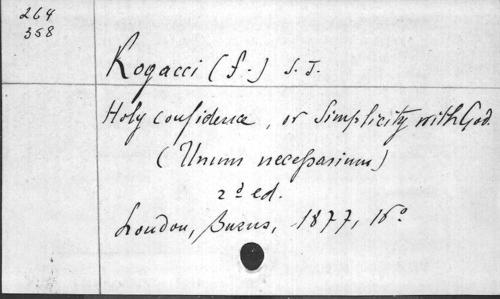 264
358
Rogacci (f.) S. J.
Holy confidence, or Simplicity with God.
(Unum necessarium)
2d ed.
London, Burns, 1877, 16o